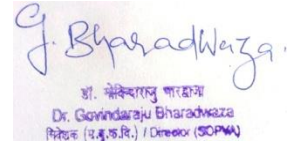 G. Bharadwaza.
डॉ. गोविंदाराजु भारद्वाजा
Dr. Govindaraju Bharadwaza
निदेशक (द.यु.फ.वि.) / Director (SOPWA)